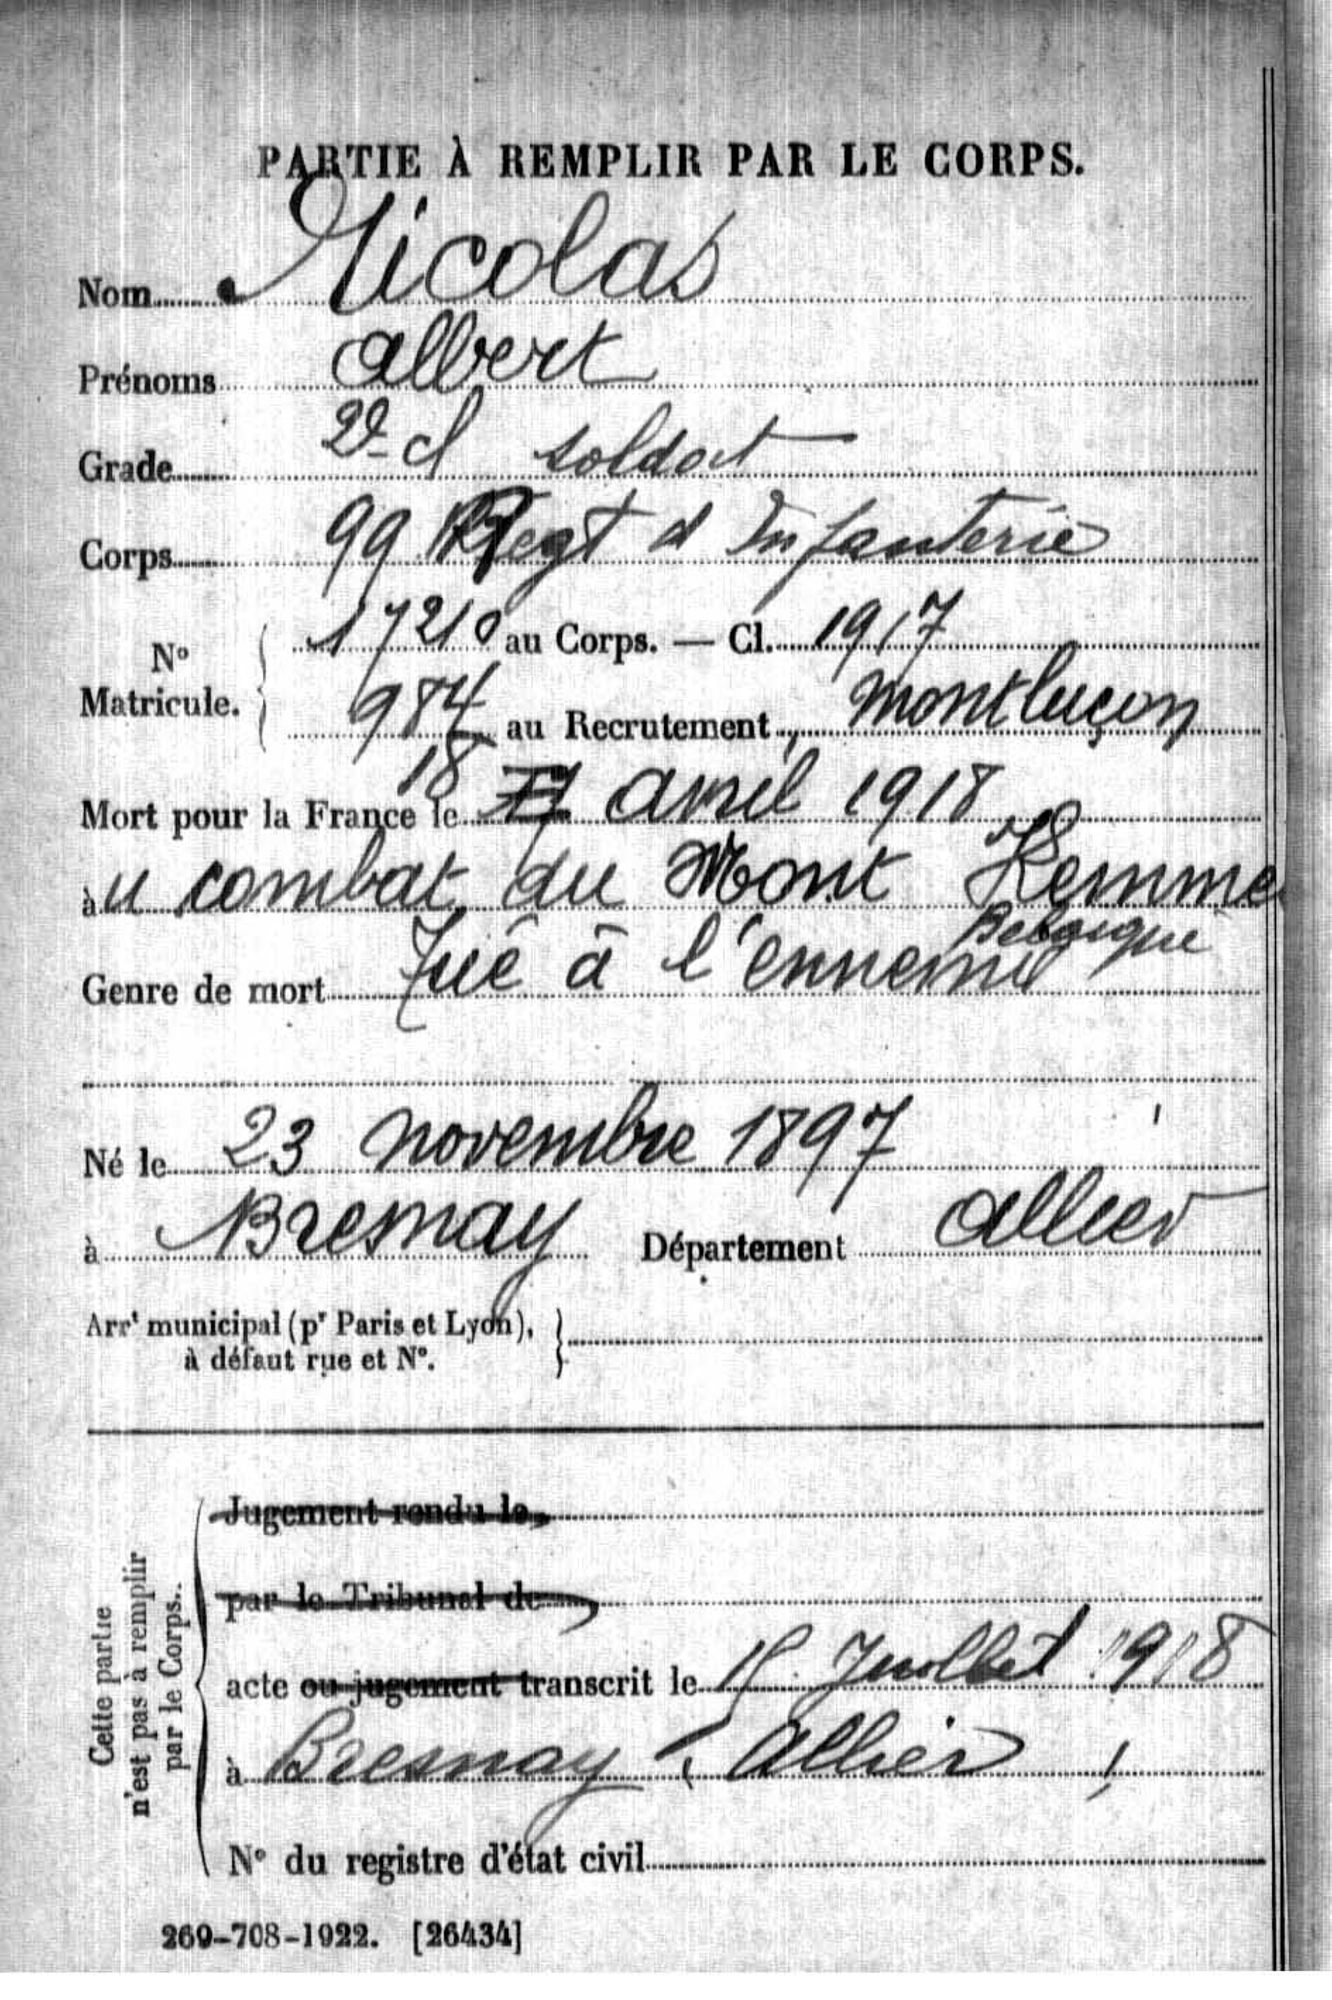 PARTIE À REMPLIR PAR LE CORPS.
Nom Nicolas
Prénoms Albert
Grade 2e cl soldat
Corps 99 Regt d'Infanterie
N° Matricule. 17210 au Corps. — Cl. 1917
984 au Recrutement Montluçon
Mort pour la France le 18 avril 1918
àu combat du Mont Kemme
Belgique
Genre de mort Tué à l'ennemi
Né le 23 novembre 1897
à Bresnay Département Allier
Arrt municipal (pr Paris et Lyon),
à défaut rue et N°.
Cette partie
n'est pas à remplir
par le Corps.
Jugement rendu le
par le Tribunal de
acte ou jugement transcrit le Juillet 1918
à Bresnay (Allier)
N° du registre d'état civil
269-708-1922. [26434]